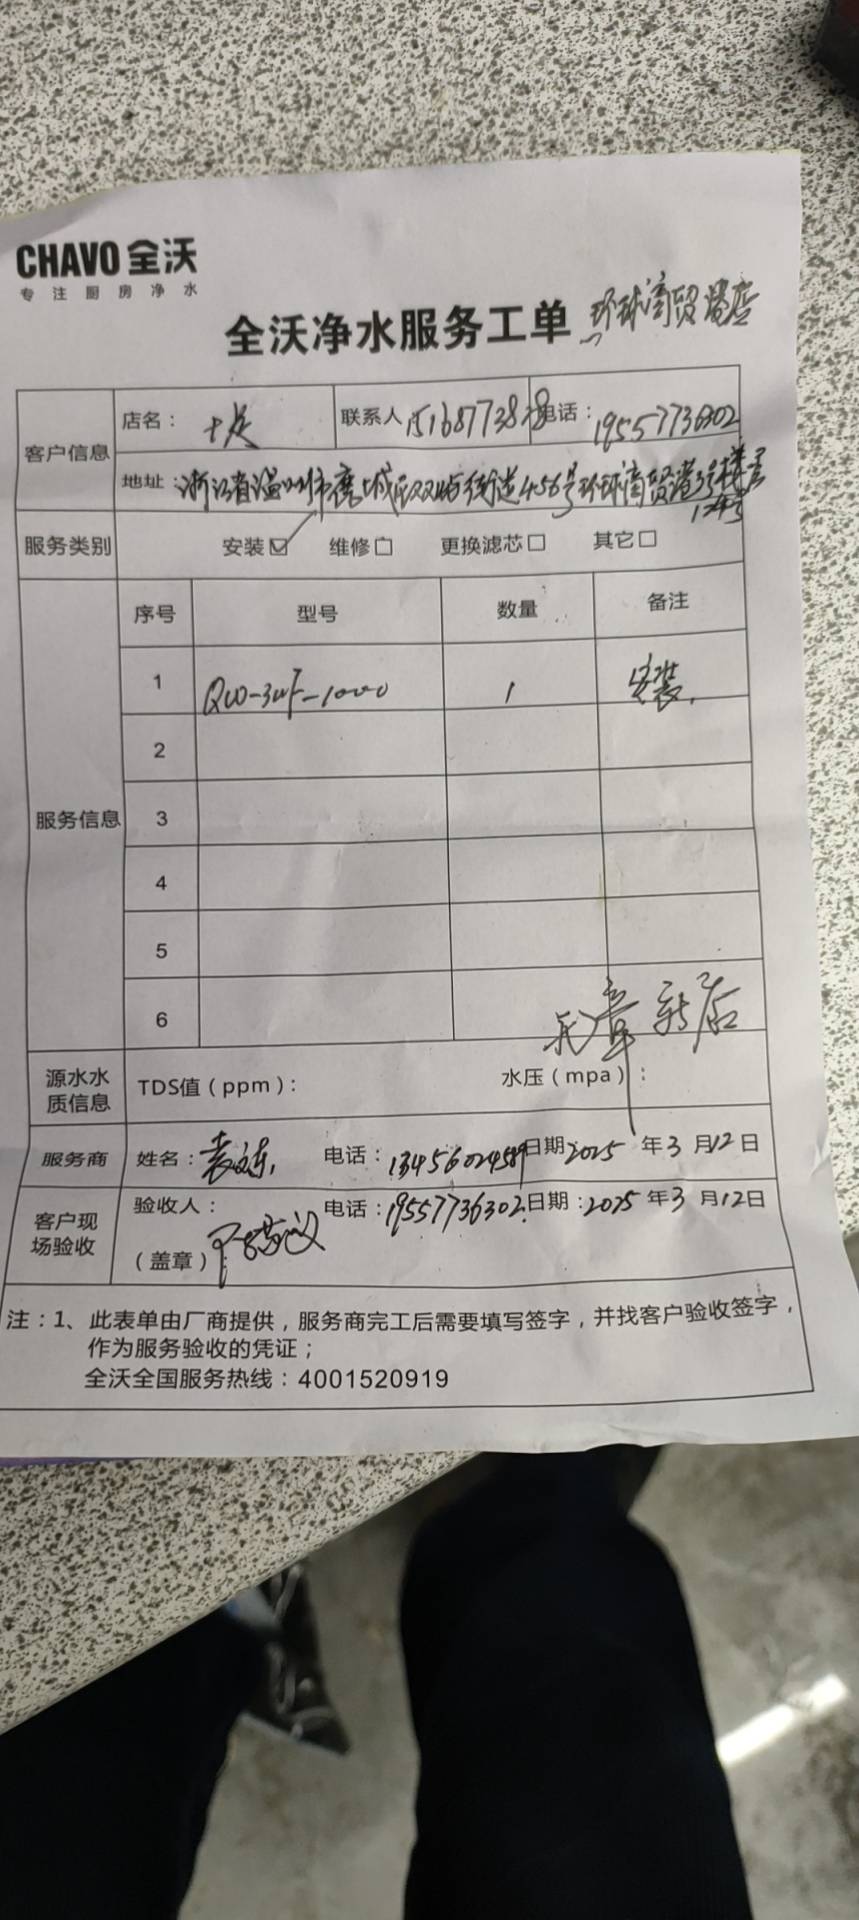 CHAVO 全沃
专注厨房净水
全沃净水服务工单 环球商贸港店
客户信息
店名： 联系人 15168773828 电话：19557736302
地址：浙江省温州市鹿城区双屿街道456号环球商贸港3号楼
124号
服务类别 安装☑ 维修□ 更换滤芯□ 其它□
服务信息
序号 型号 数量 备注
1 QW-3UF-1000 1 安装
2
3
4
5
6
章 店
源水水质信息 TDS值（ppm）： 水压（mpa）：
服务商 姓名：袁 电话：13456024589 日期：2025 年 3 月 12 日
客户现场验收 验收人： 电话：19557736302 日期：2025 年 3 月 12 日
（盖章）
注：1、此表单由厂商提供，服务商完工后需要填写签字，并找客户验收签字，
作为服务验收的凭证；
全沃全国服务热线：4001520919